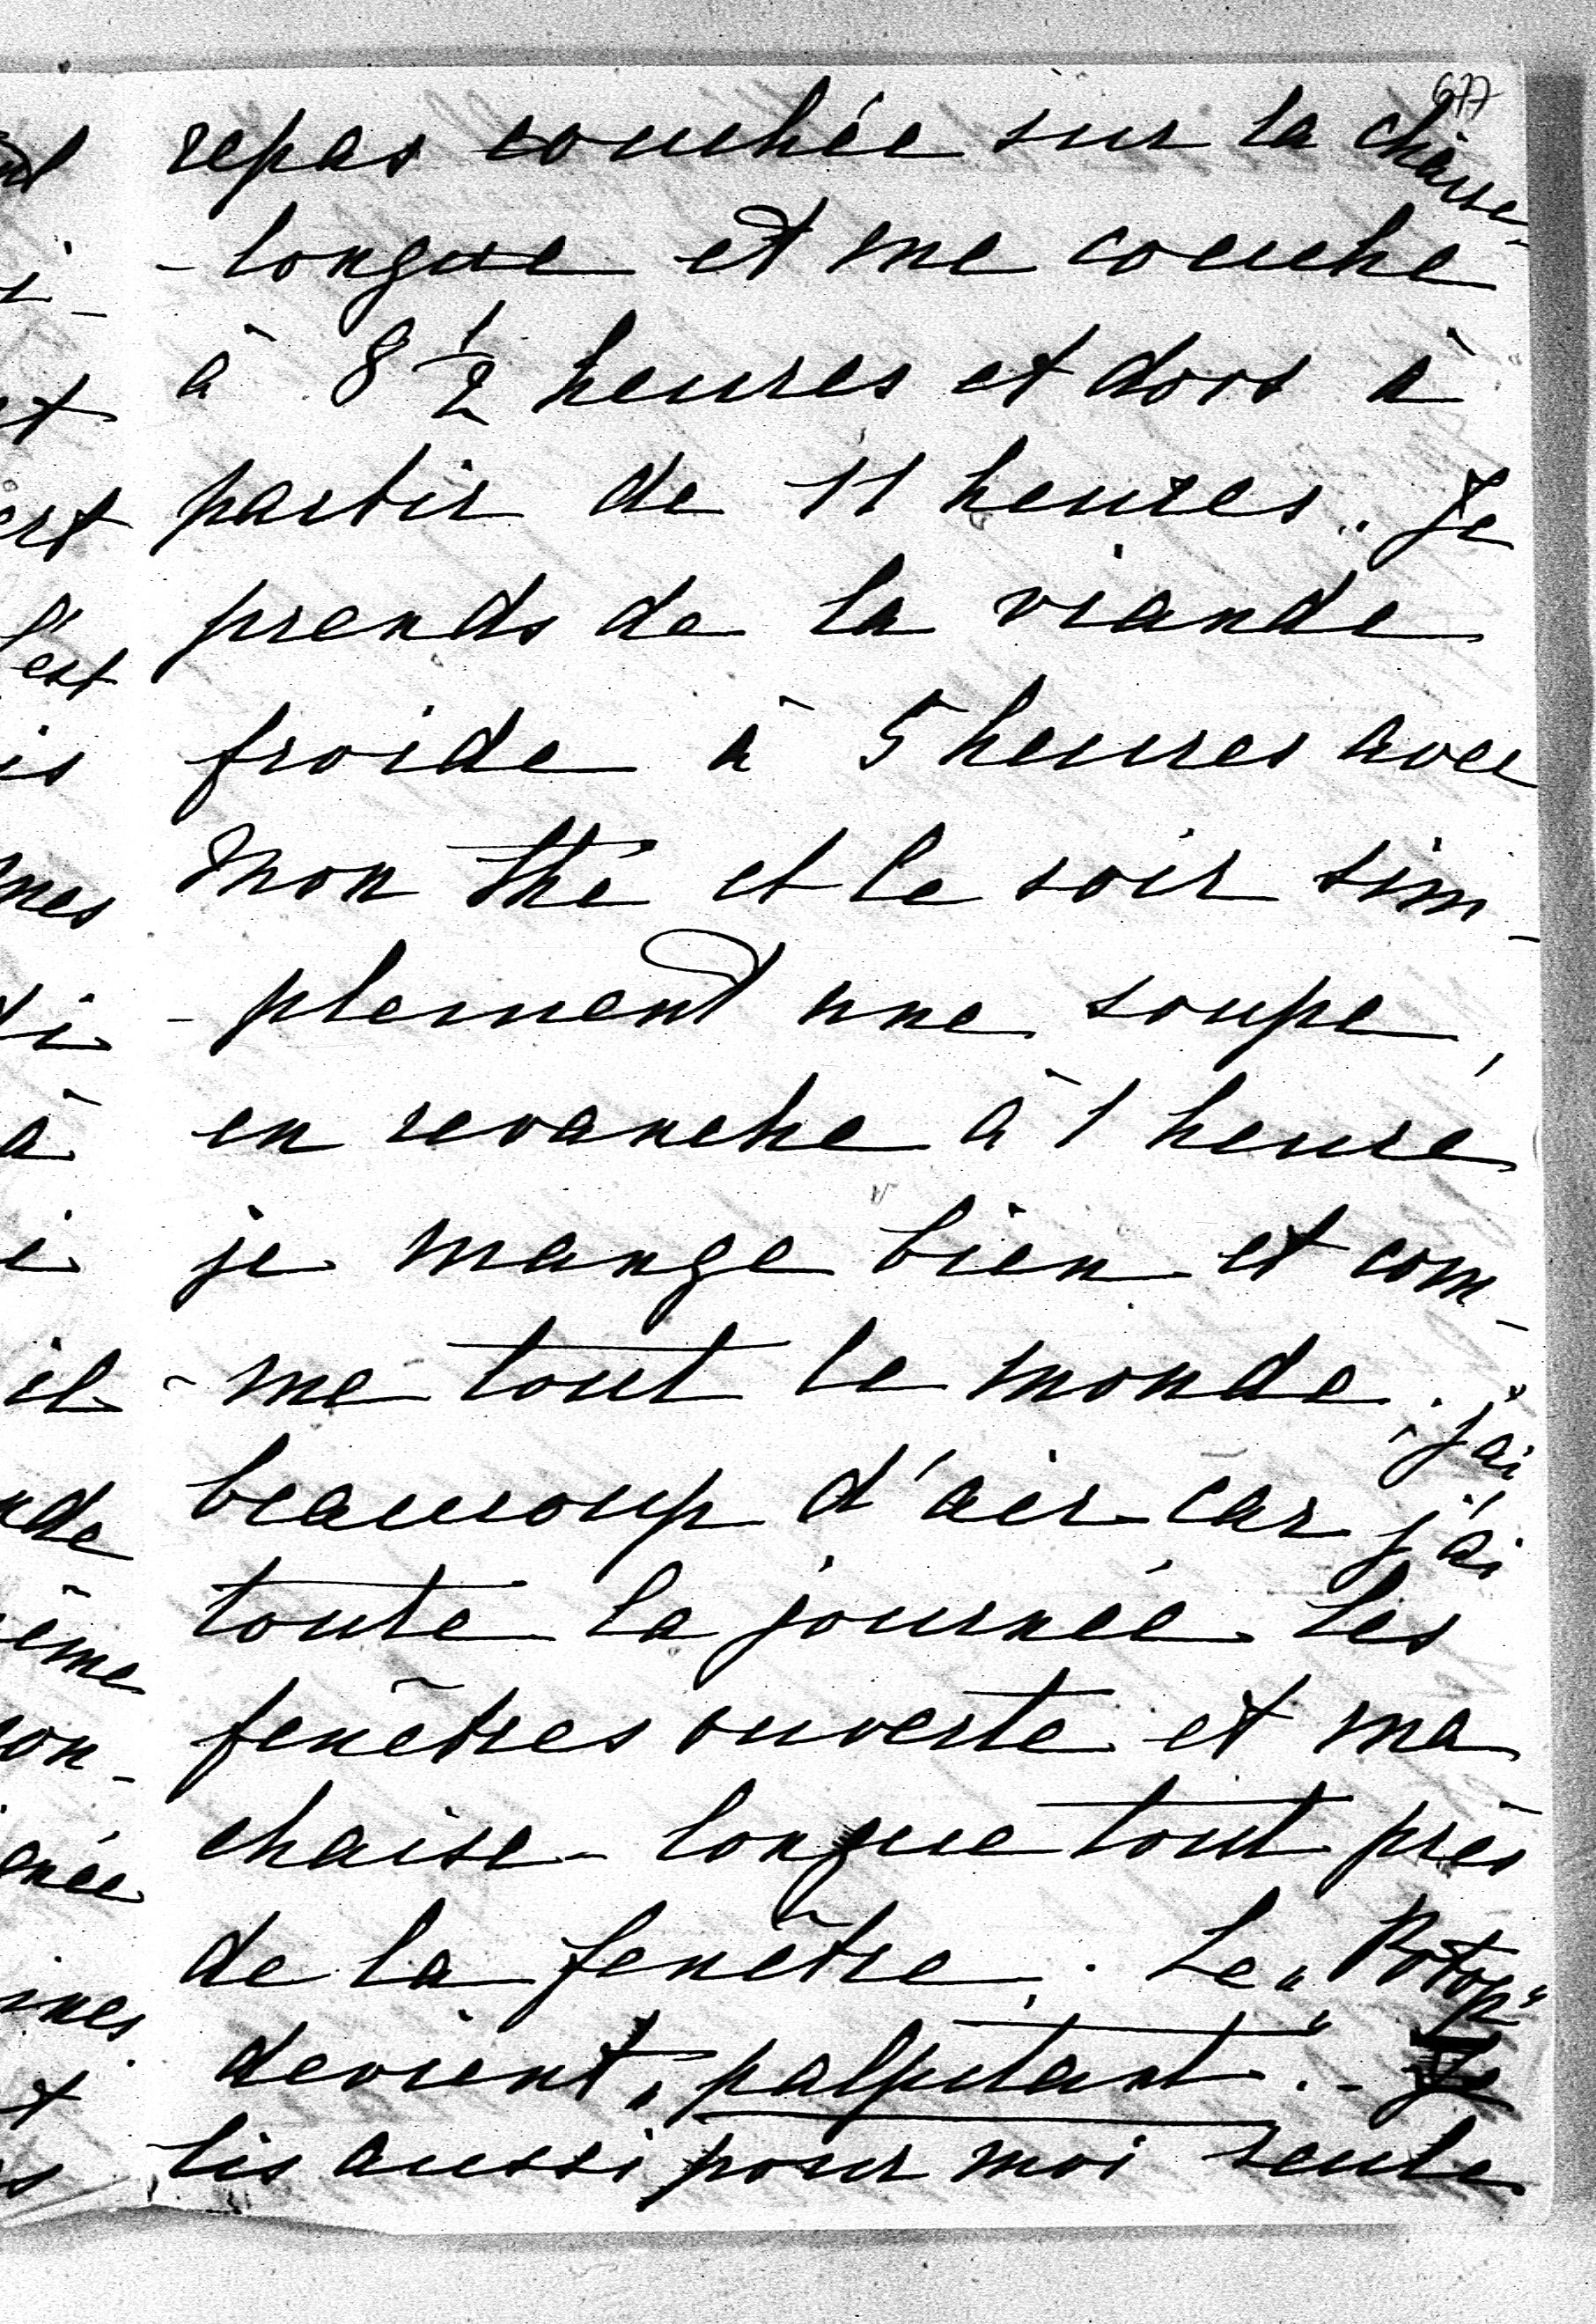 677
repas couchée sur la chaise-
-longue et me couche
à 8 1/2 heures et dors à
partir de 11 heures. Je
prends de la viande
froide à 5 heures avec
mon thé et le soir sim-
-plement une soupe,
en revanche à 1 heure
je mange bien et com-
-me tout le monde. j'ai
beaucoup d'air car j'ai
toute la journée les
fenêtres ouverte et ma
chaise-longue tout près
de la fenêtre. Le „Potop“
devient „palpitant“.- Je
lis aussi pour moi seule